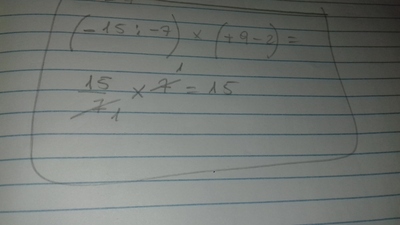 (-15 : -7) × (+9 - 2) =
15/7 1 × 7 1 = 15